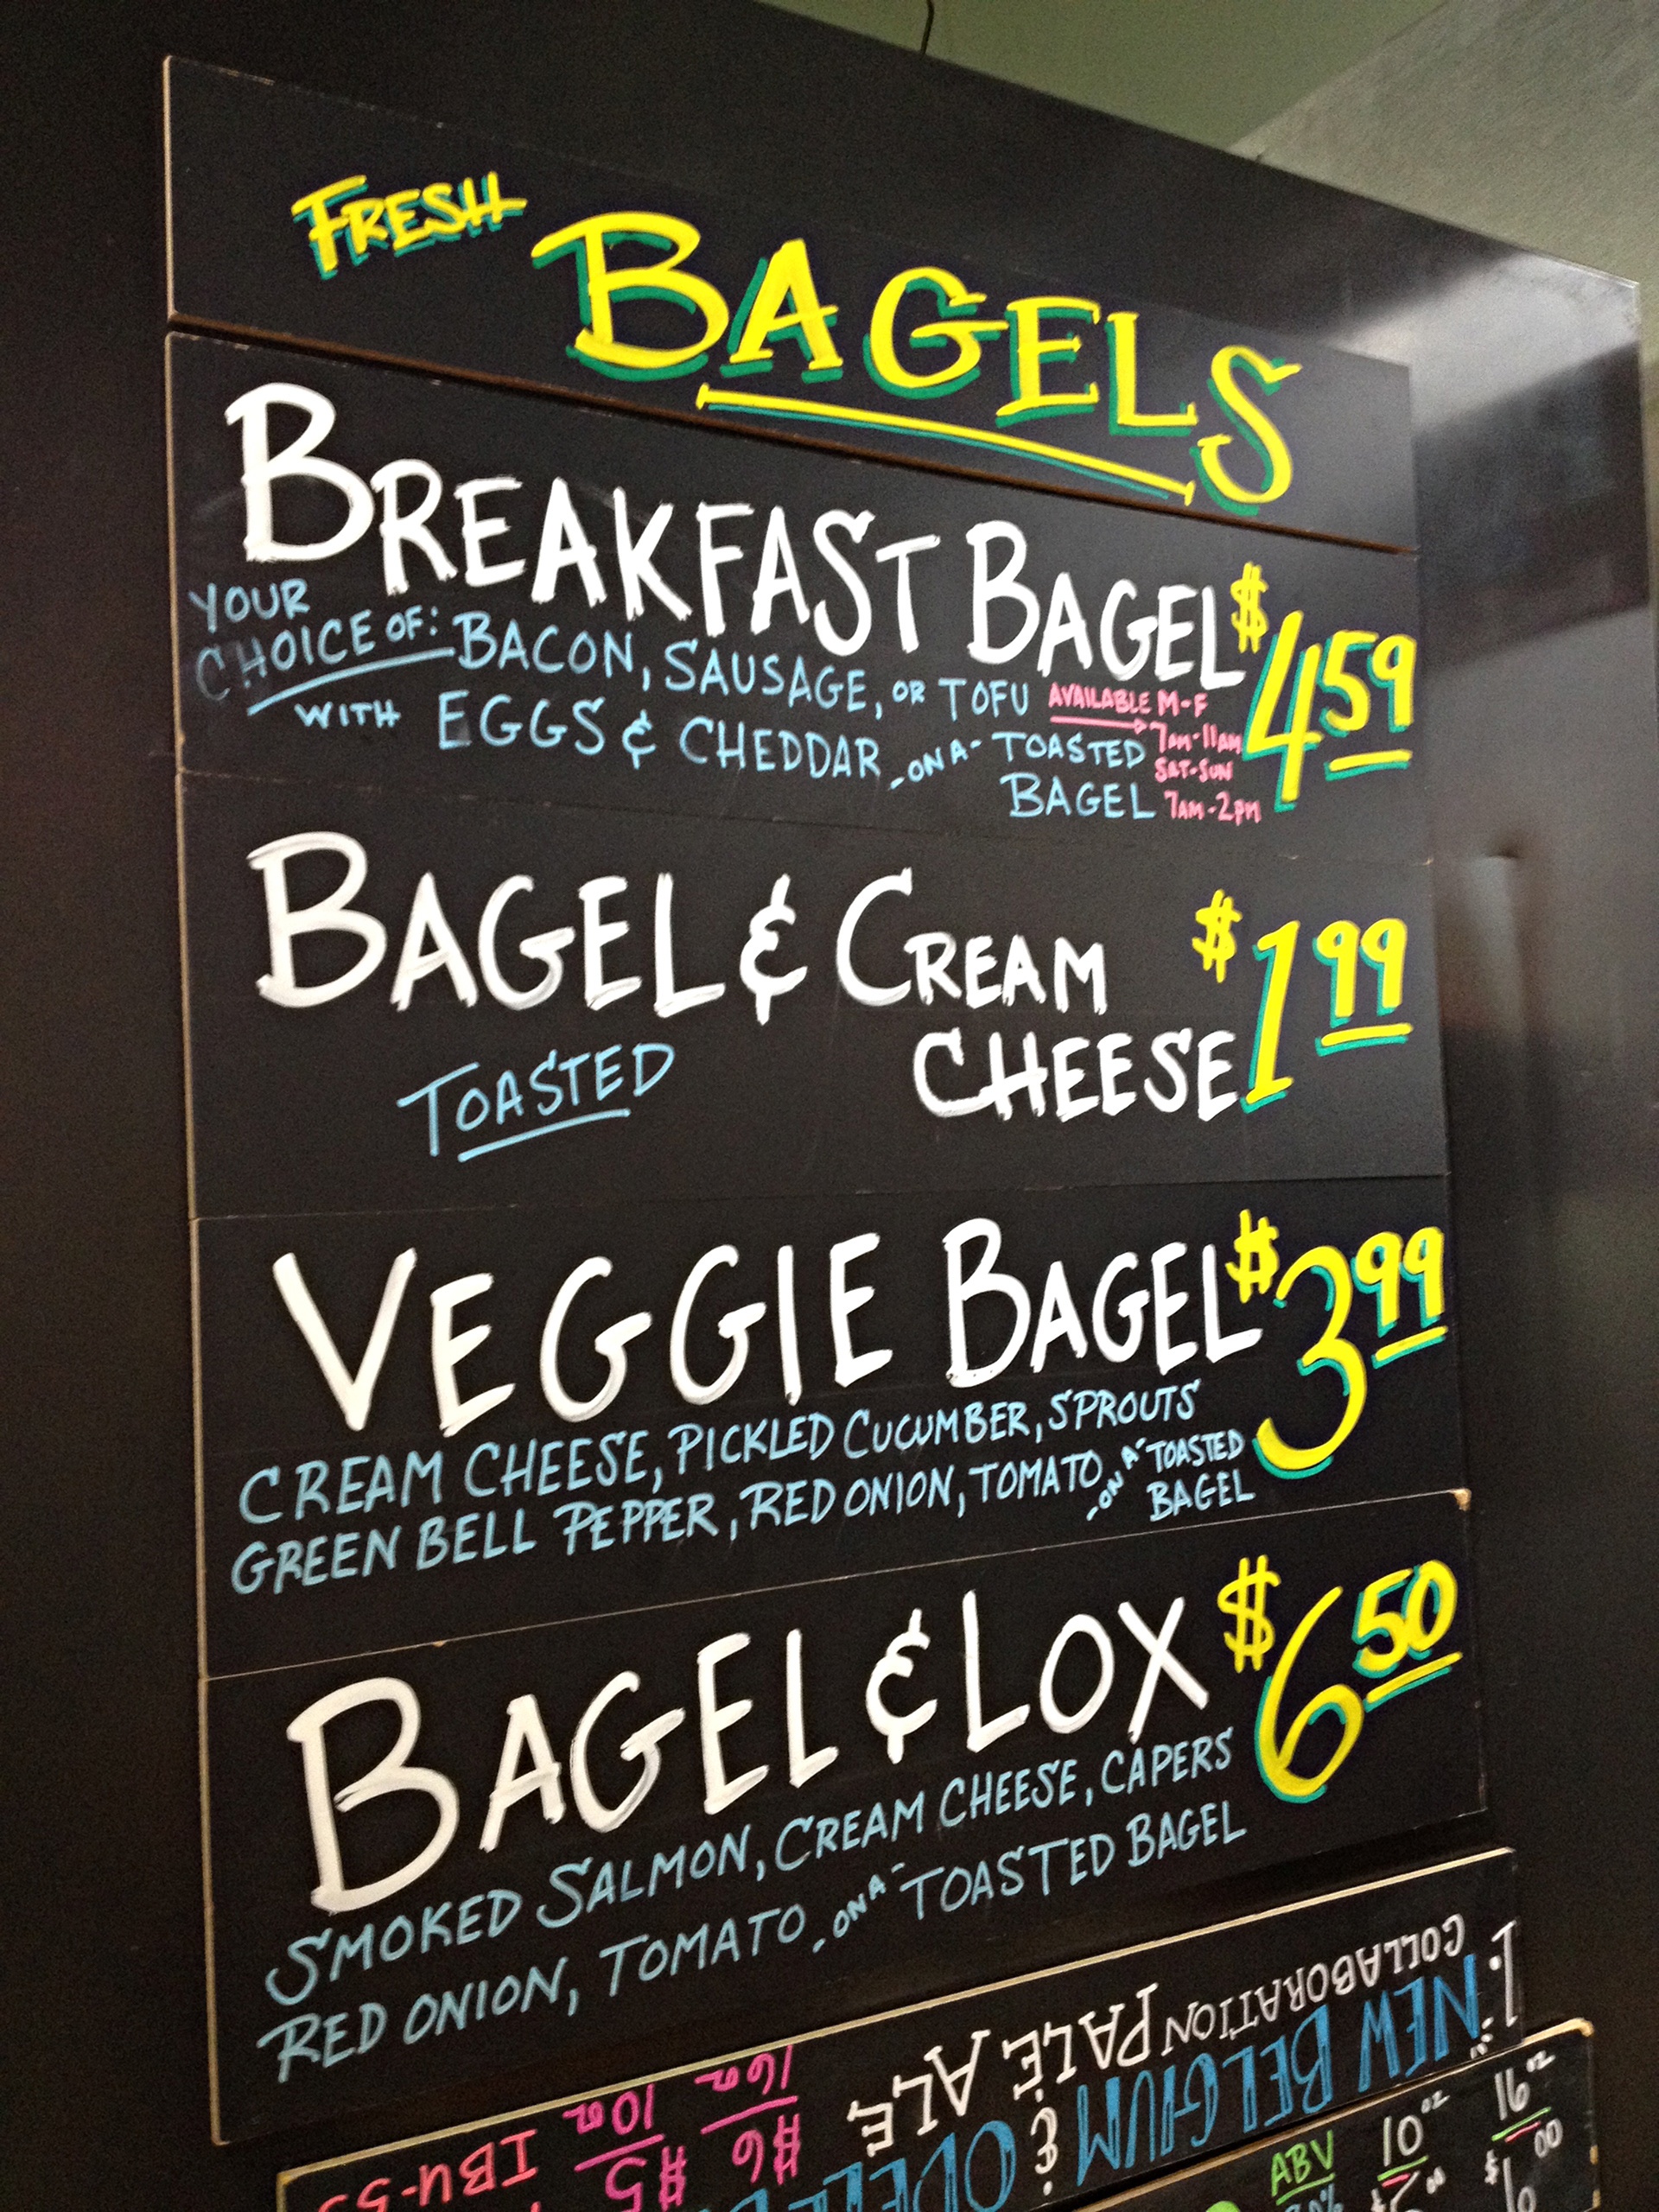 FRESH BAGELS
BREAKFAST BAGEL $4.59
YOUR CHOICE OF: BACON, SAUSAGE, OR TOFU
WITH EGGS & CHEDDAR -ON A- TOASTED BAGEL
AVAILABLE M-F
7AM-11AM
SAT-SUN
7AM-2PM
BAGEL & CREAM CHEESE $1.99
TOASTED
VEGGIE BAGEL $3.99
CREAM CHEESE, PICKLED CUCUMBER, SPROUTS
GREEN BELL PEPPER, RED ONION, TOMATO -ON A- TOASTED BAGEL
BAGEL & LOX $6.50
SMOKED SALMON, CREAM CHEESE, CAPERS
RED ONION, TOMATO -ON A- TOASTED BAGEL
1.
NEW BELGIUM & ODELL
COLLABORATION PALE ALE
$6 16oz
$5 10oz
IBU-
ABV
10oz
16oz
$6.00